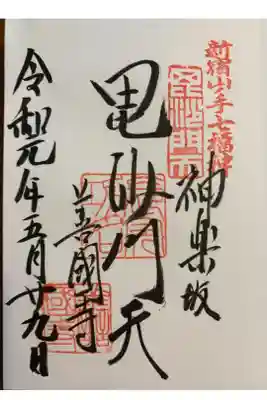 新宿山ノ手七福神
毘沙門天
神楽坂
毘沙門天
善國寺
令和元年五月廿九日